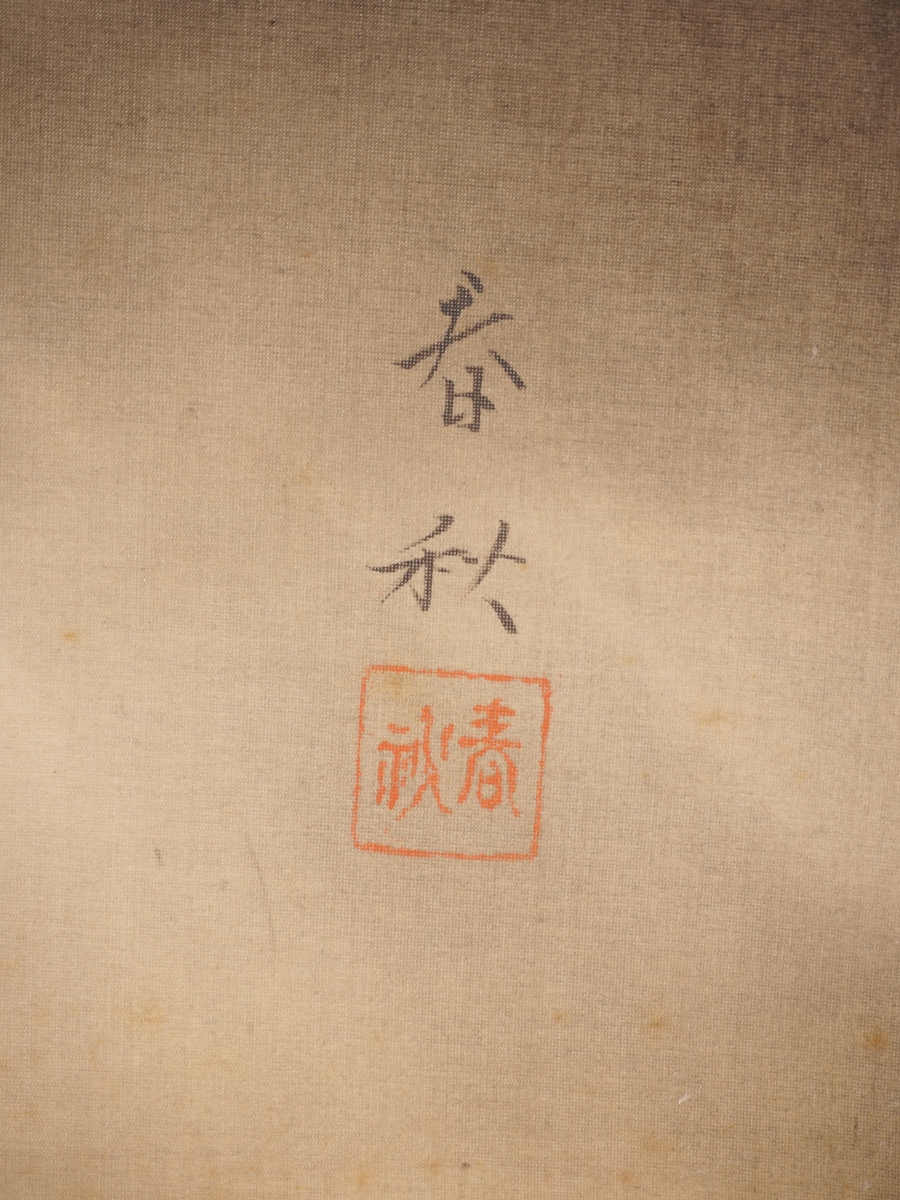 春秋
春秋